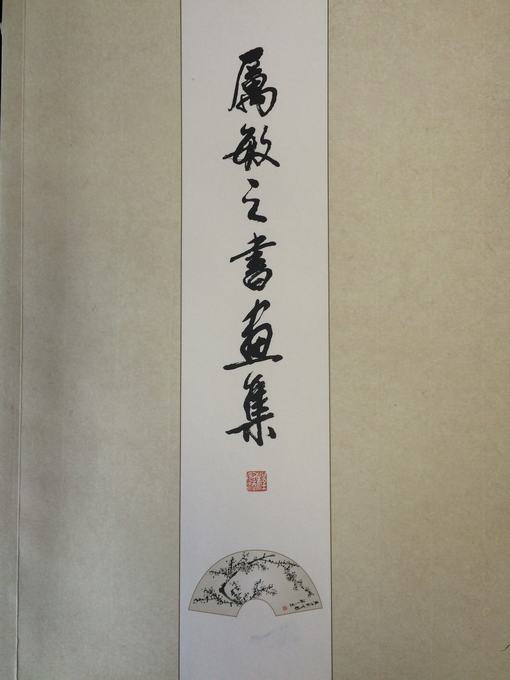 厲敏之書畫集